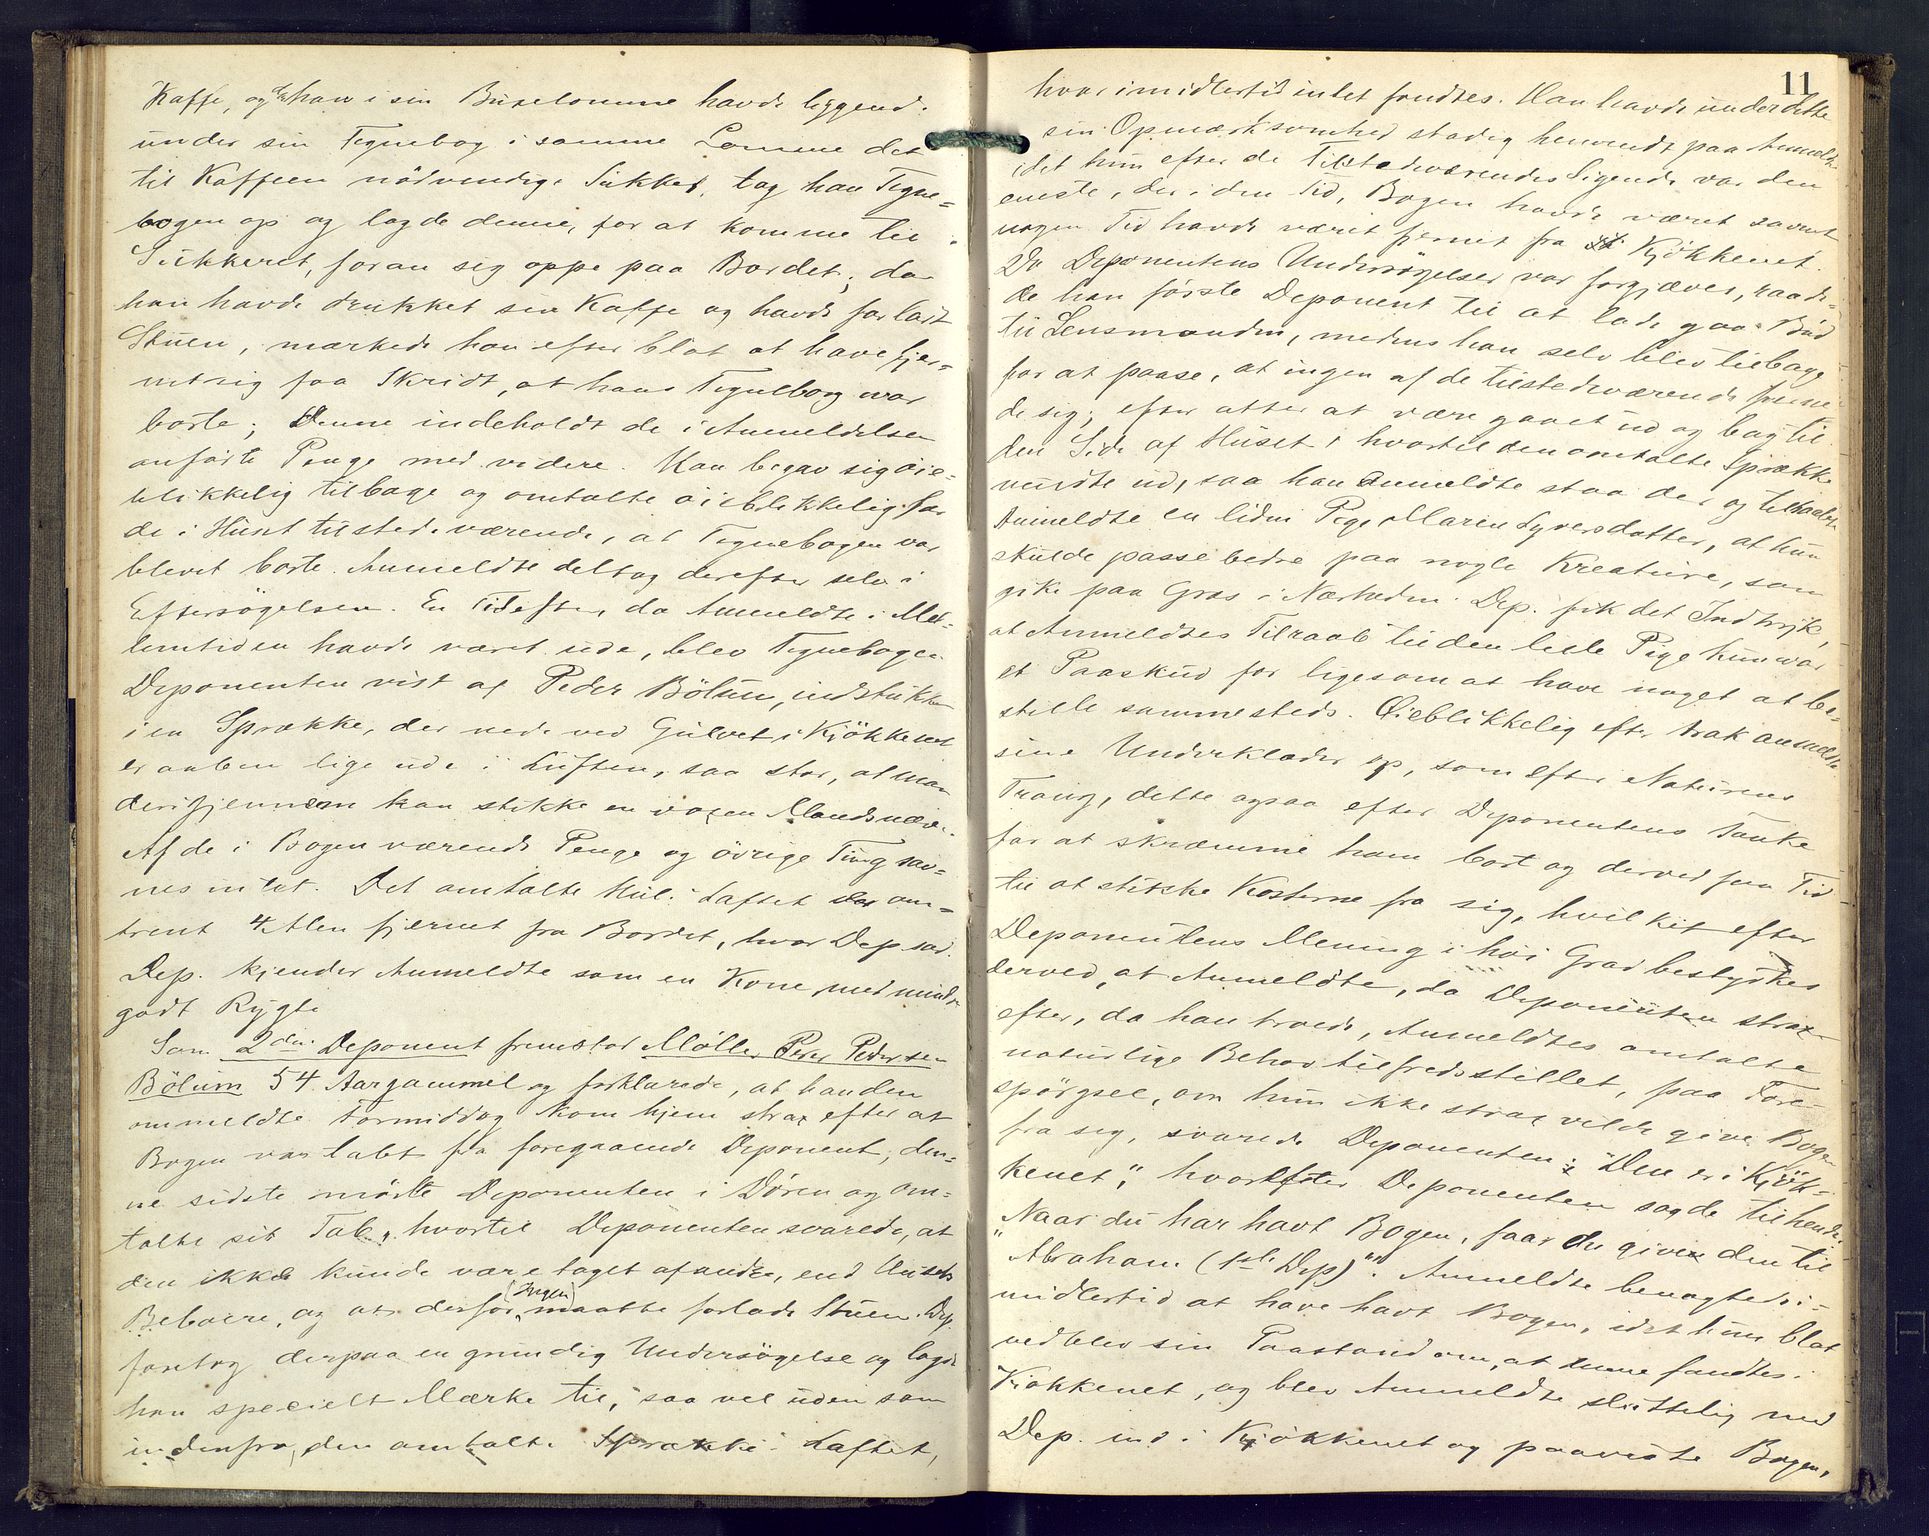 Kaffe, og da han i sin Buxelomme havde liggende
under sin Tegnebog i samme Lomme det
til Kaffeen nödvendige Sukker, tog han Tegne-
bogen op og lagde denne, for at komme til
Sukkeret, foran sig oppe paa Bordet; da
han havde drukket sin Kaffe og havde forladt
Stuen, mærkede han efter blot at have fjer-
net sig faa Skridt, at hans Tegnebog var
borte; Denne indeholdt de i Anmeldelsen
anførte Penge med videre. Han begav sig öie-
blikkelig tilbage og omtalte öieblikkelig for
de i Huset tilstedeværende, at Tegnebogen var
blevet borte. Anmeldte deltog derefter selv i
Eftersøgelsen. En Tid efter, da Anmeldte i Mel-
lemtiden havde været ude, blev Tegnebogen
Deponenten vist af Peder Bölum, indstukken
i en Sprække, der nede ved Gulvet i Kjökkenet
er aaben lige ude i Luften, saa stor, at man
derigjennem kan stikke en voxen Mandsnæve.
Af de i Bogen værende Penge og övrige Ting sav-
nes intet. Det omtalte Hul i Laftet er om-
trent 4 Alen fjernet fra Bordet, hvor Dep sad.
Dep. kjender Anmeldte som en Kone med mindre
godt Rygte
Som 2den Deponent fremstod Møller Peder Pedersen
Bölum 54 Aar gammel og forklarede, at han den
ommeldte Formiddag kom hjem strax efter at
Bogen var tabt fra foregaaende Deponent; den-
ne sidste mödte Deponenten i Døren og om-
talte sit Tab, hvortil Deponenten svarede, at
den ikke kunde være taget af andre, end Husets
Beboere, og at derfor (Ingen) maatte forlade Stuen. Dep.
foretog derpaa en grundig Undersøgelse og lagde
han specielt Mærke til, saa vel uden som
indenfra, den omtalte Sprække i Laftet,
11
hvor imidlertid intet fandtes. Han havde under dette
sin Opmærksomhed stadig henvendt paa Anmeldte
idet hun efter de Tilstedeværendes Sigende var den
eneste, der i den Tid, Bogen havde været savnet
nogen Tid havde været fjernet fra Kjökkenet.
Da Deponentens Undersøgelser var forgjæves, raade-
de han første Deponent til at lade gaa Bud
til Lensmanden, medens han selv blev tilbage
for at paase, at ingen af de tilstedeværende fjerne-
de sig; efter atter at være gaaet ud og bag til
den Side af Huset, hvortil den omtalte Sprække
vendte ud, saa han Anmeldte staa der og tilraabte
Anmeldte en liden Pige Maren Syversdatter, at hun
skulde passe bedre paa nogle Kreature, som
gik paa Græs i Nærheden. Dep. fik det Indtryk,
at Anmeldtes Tilraab til den lille Pige kun var
et Paaskud for ligesom at have noget at be-
stille sammesteds. Øieblikkelig efter trak anmeldte
sine Underklæder op, som efter Naturens
Trang, dette ogsaa efter Deponentens Tanke
for at skræmme ham bort og derved faa Tid
til at stikke Kosterne fra sig, hvilket efter
Deponentens Mening i høi Grad bestyrkes
derved, at Anmeldte, da Deponenten strax
efter, da han troede, Anmeldtes omtalte
naturlige Behov tilfredsstillet, paa Fore-
spørgsel, om hun ikke strax vilde give Bogen
fra sig, svarede Deponenten: "Den er i Kjök-
kenet", hvorefter Deponenten sagde til hende:
"Naar du har havt Bogen, faar du give den til
Abraham (1ste Dep)". Anmeldte benægtede i-
midlertid at have havt Bogen, idet hun blot
vedblev sin Paastand om, at denne fandtes i
Kjökkenet, og blev Anmeldte sluttelig med
Dep. ind i Kjökkenet og paaviste Bogen,